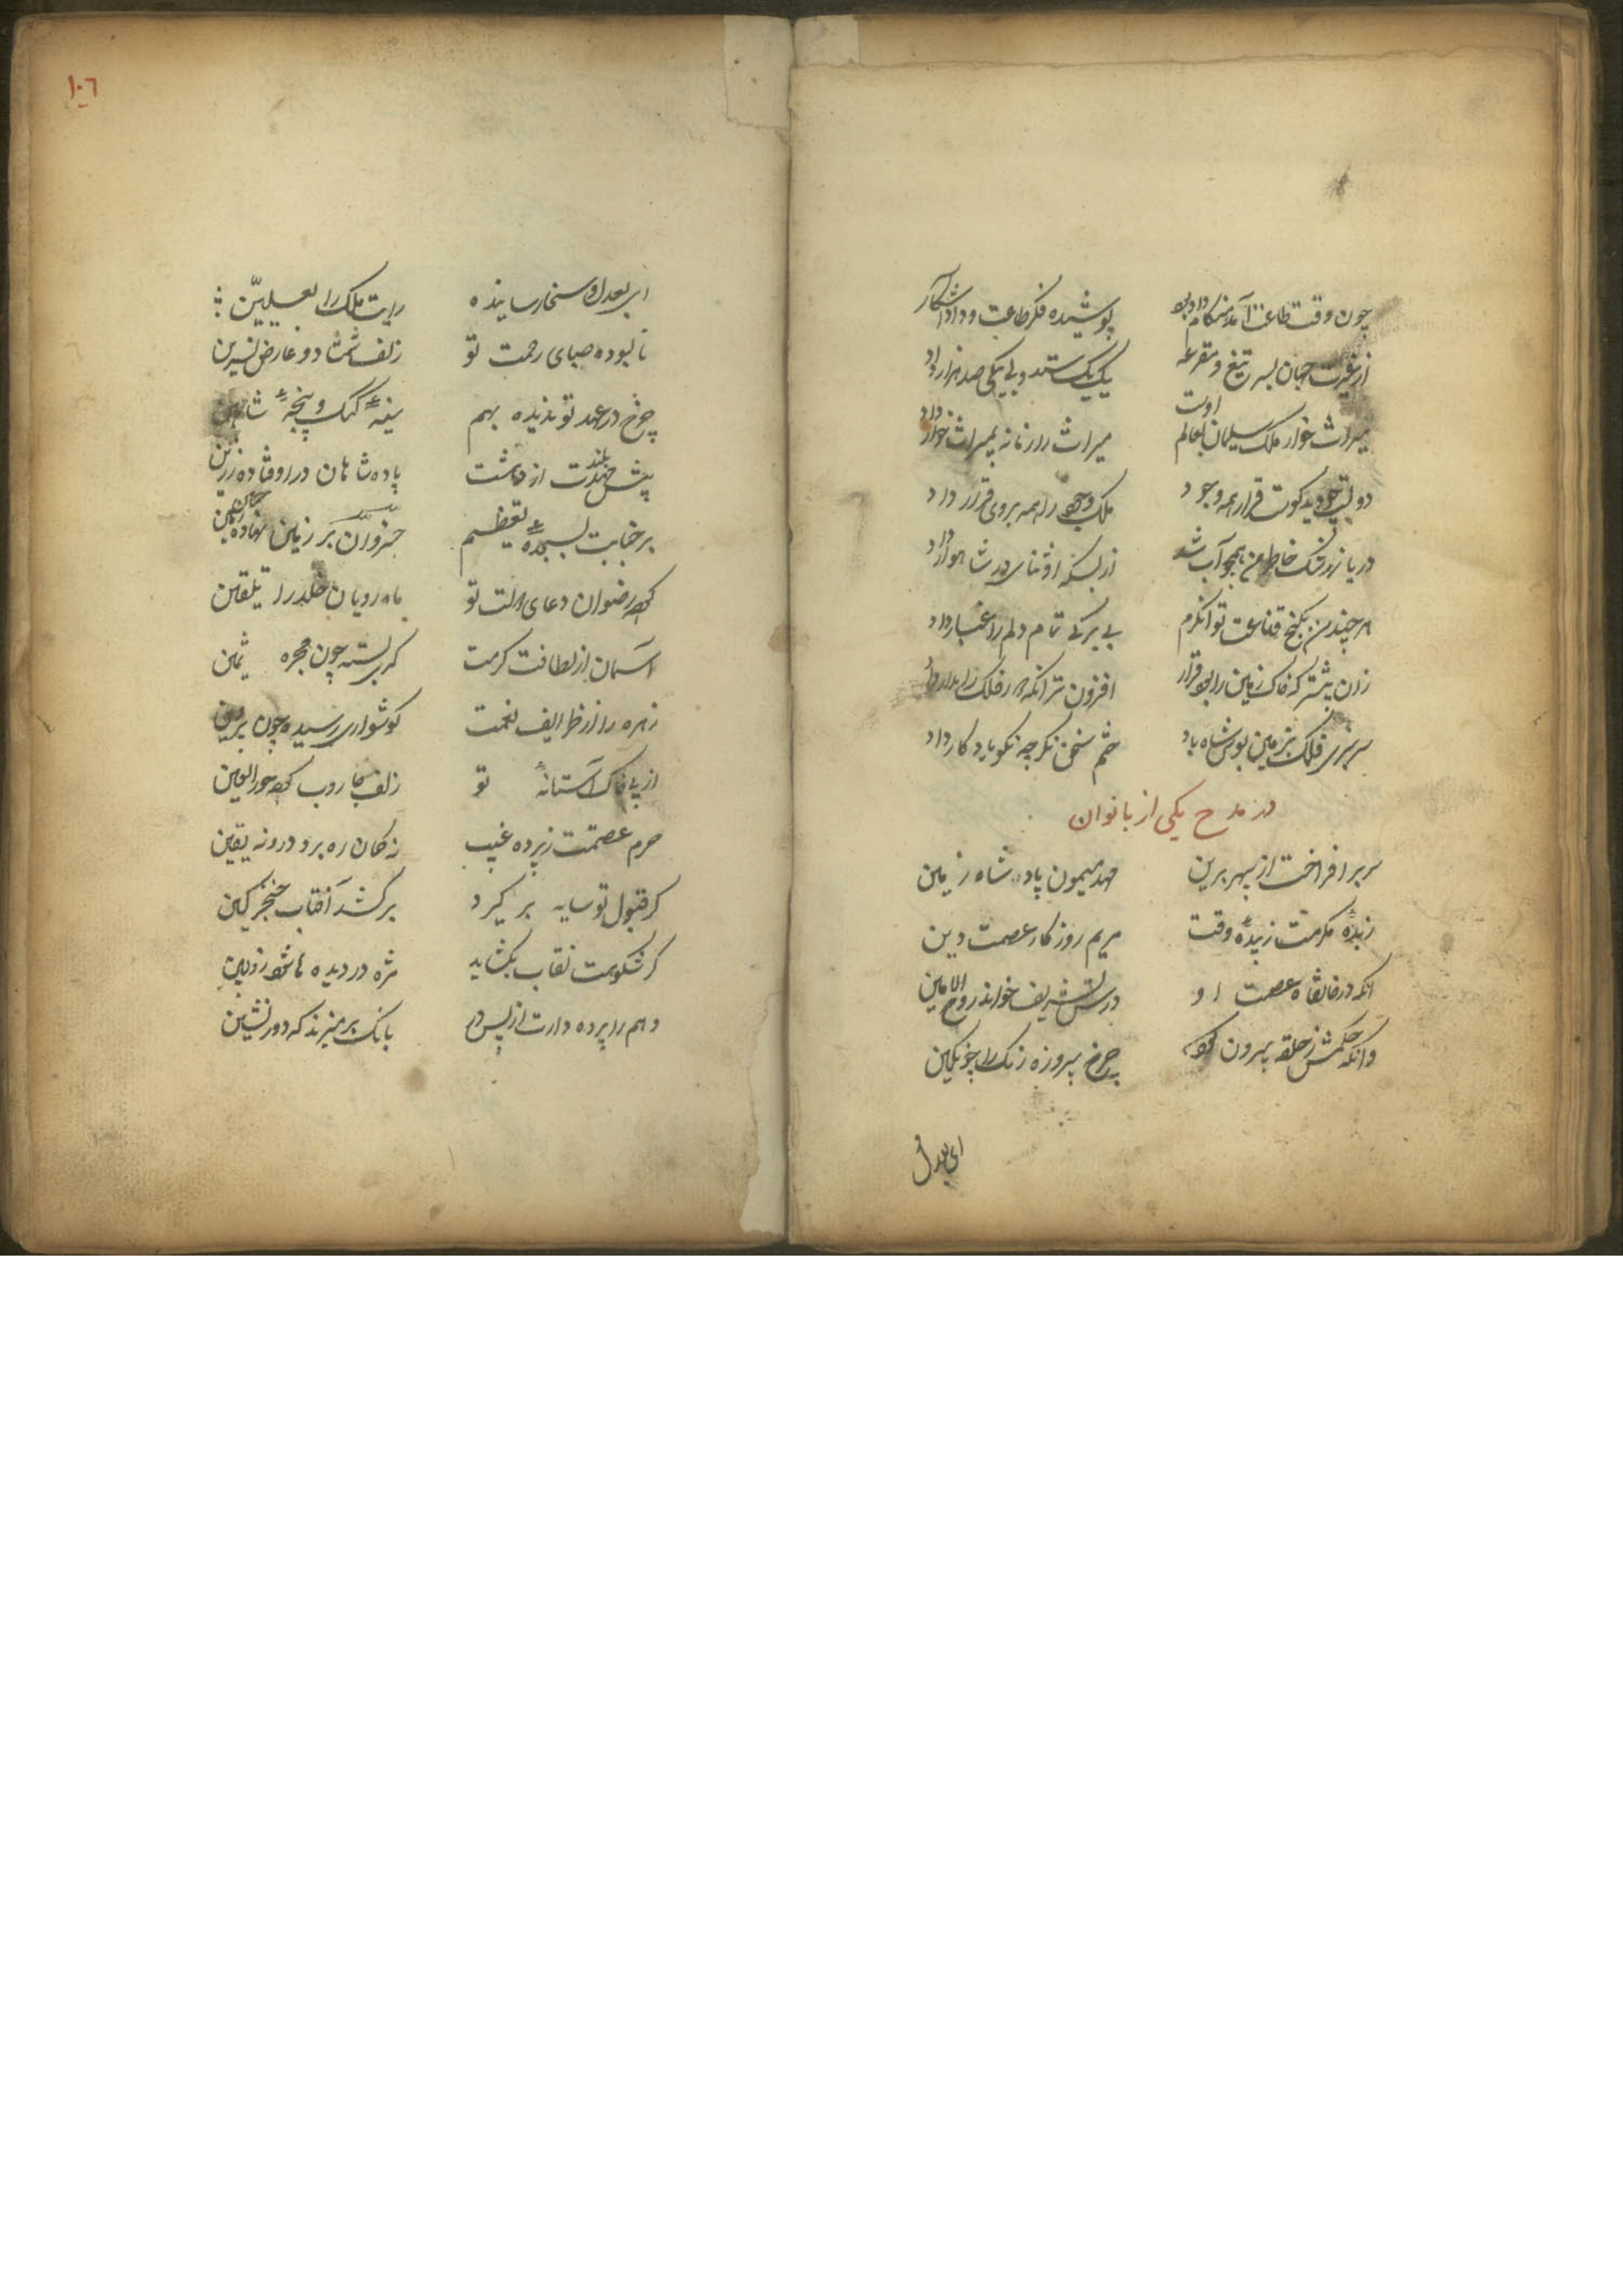 چون وقت طاعت آمد و هنگام داد بود پوشیده فکر طاعت و داد آشکار
از غیرت جهان بسر تیغ و مقرعه یک یک ستد ولی یکی صد هزار داد
میراث خوار ملک سلیمان بعالم اوست میراث را زمانه بمیراث خوار داد
قرار همه وجود ملک وجود را همه بروی قرار داد
خاطر من همچو آب شد از بسکه در شاهوار داد
هر چند من بکنج قناعت توانگرم بی برکی تمام دلم را غبار داد
زان بیشتر که خاک زمین را بود قرار افزون تر آنکه دور فلک را مدار داد
سرسری فلک بزمین بوس شاه باد ختم سخن نکر چه نکو یادکار داد
در مدح یکی از بانوان
سر برافراخت از سپهر برین مهد میمون پادشاه زمین
زبدهٔ مکرمت زبیدهٔ وقت مریم روزکار عصمت دین
آنکه در خانقاه عصمت او درس تشریف خواند روح الامین
وانکه حکمش ز حلقه بیرون کرد چرخ پیروزه رنک را چو نکین
ای بعدل
١٠٦
ای بعدل و سخا رسانیده رایت ملک را بعلیین
نابسوده صبای رحمت تو زلف شمشاد و عارض نسرین
چرخ در عهد تو ندیده بهم سینهٔ کبک و پنجهٔ شاهین
پیش مهدت از دهشت بلند پادشاهان در اوفتاده ز زین
بر جنابت بسجدهٔ تعظیم خسروان بر زمین نهاده جبین
کرده رضوان دعای دولت تو ماه رویان خلد را تلقین
آسمان از لطافت کرمت کمری بسته چون مجره ثمین
زهره را از ظرایف نعمت کوشواری رسیده چون پروین
از پی خاک آستانهٔ تو زلف جاروب کرده حورالعین
حرم عصمتت ز پرده غیب نه کمان ره برد درو نه یقین
کر قبول تو سایه بر کیرد برکشد آفتاب خنجر کین
کر شکوهت نقاب بکشاید مژه در دیده ها شود زوبین
وهم را پرده دارت از پس در بانک بر میزند که دور نشین